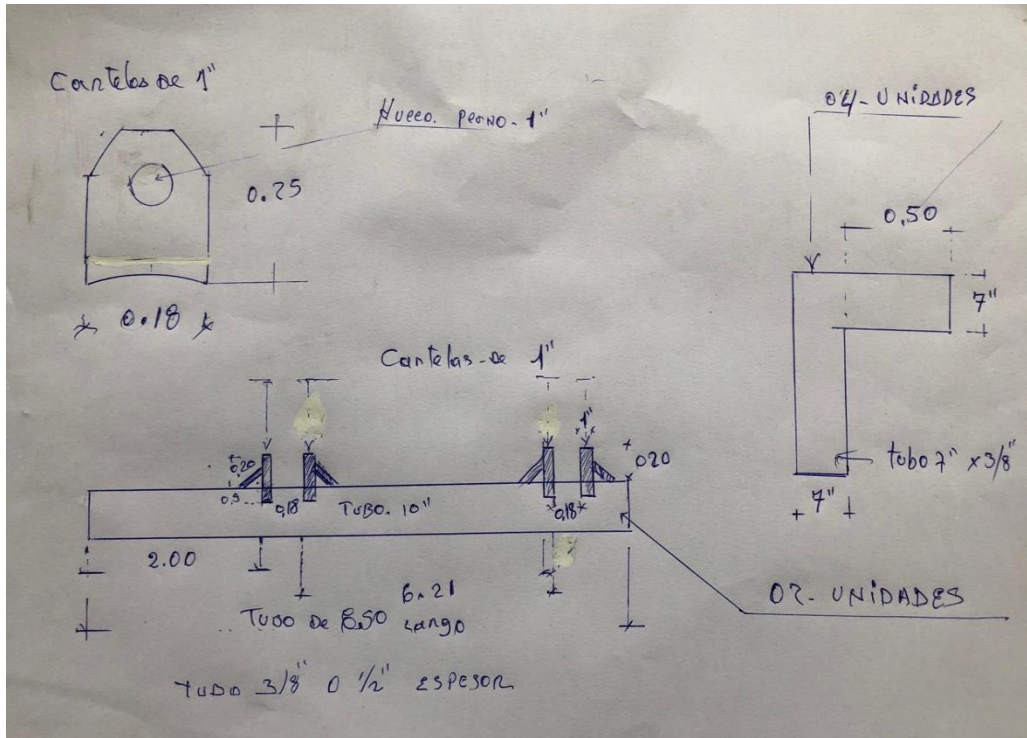 Cartelas de 1"
Hueco. Perno. 1"
0.25
0.18
04-UNIDADES
0,50
7"
tubo 7" x 3/8"
7"
Cartelas-de 1"
1"
0.20
0.5
0,18
TUBO. 10"
0,18
020
2.00
6.21
TUBO de 8.50 Largo
02-UNIDADES
TUBO 3/8" O 1/2" ESPESOR